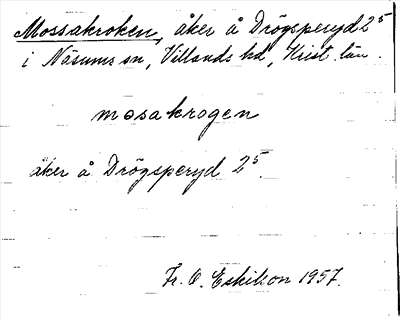 Mossakroken, åker å Drögsperyd 2⁵
i Näsums sn, Villands hd, Krist. län.
mosakrogen
åker å Drögsperyd 2⁵.
Fr. O. Eskilson 1957.